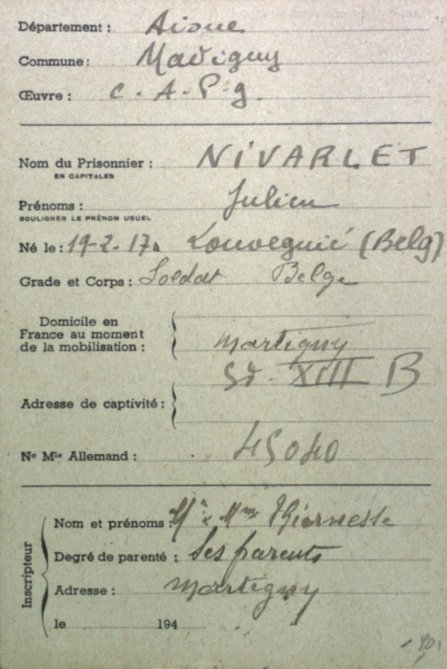 Département : Aisne
Commune : Martigny
Œuvre : C. A. P. g.
Nom du Prisonnier : NIVARLET
EN CAPITALES
Prénoms : Julien
SOULIGNER LE PRÉNOM USUEL
Né le : 19-2-17 à Louvegnié (Belg)
Grade et Corps : Soldat Belge
Domicile en
France au moment
de la mobilisation : Martigny
XIII B
Adresse de captivité :
No Mle Allemand : 45040
Inscripteur
Nom et prénoms : Mr & Mme Thiernesse
Degré de parenté : Ses parents
Adresse : Martigny
le 194